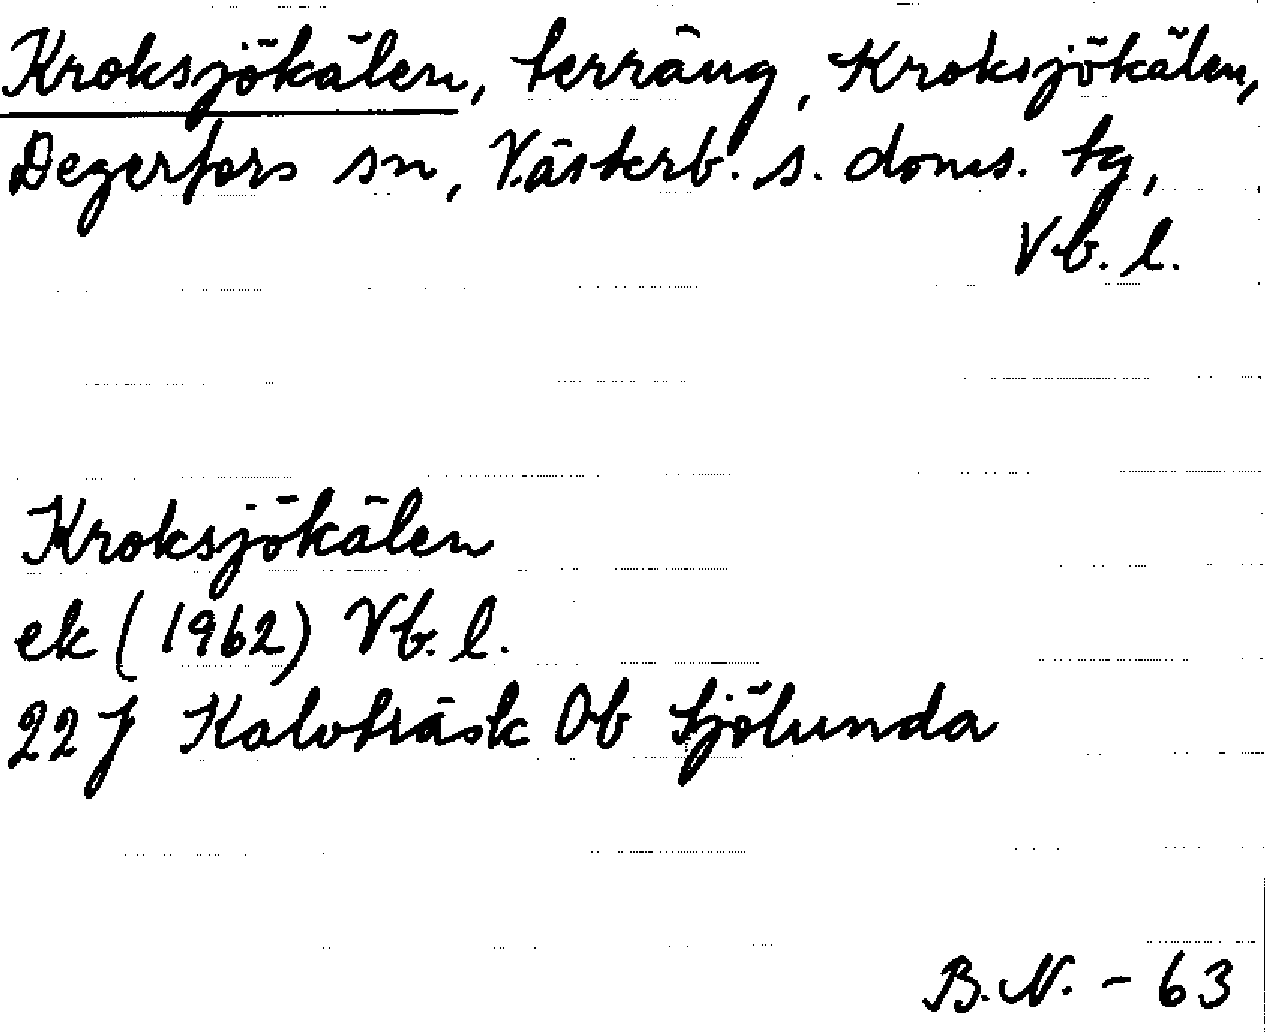 Kroksjökälen, terräng, Kroksjökälen,
Degerfors sn, Västerb. s. doms. tg,
Vb. l.
Kroksjökälen
ek (1962) Vb. l.
22 J Kalvträsk 0b Sjölunda
B.N. - 63